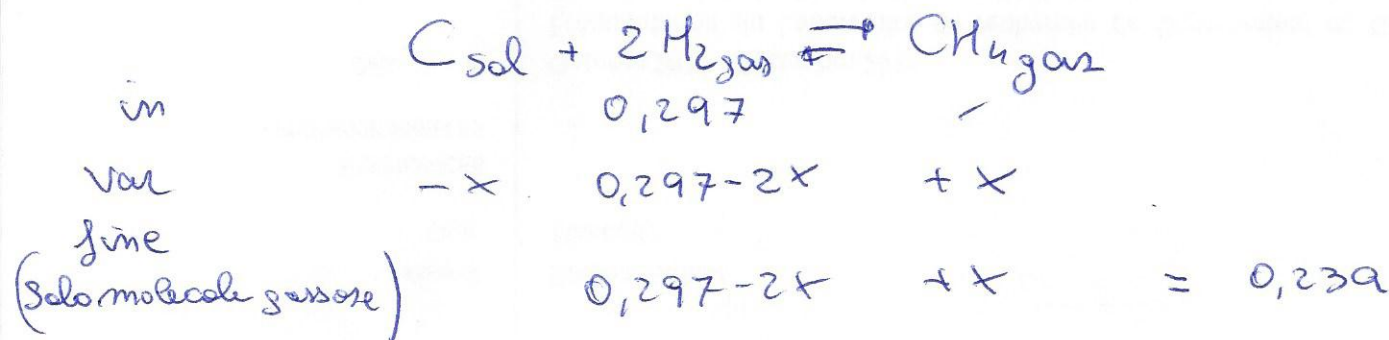 C sol + 2 H2 gas ⇌ CH4 gas
in 0,297 -
var - x 0,297-2x + x
fine
(solo molecole gassose) 0,297-2x +x = 0,239